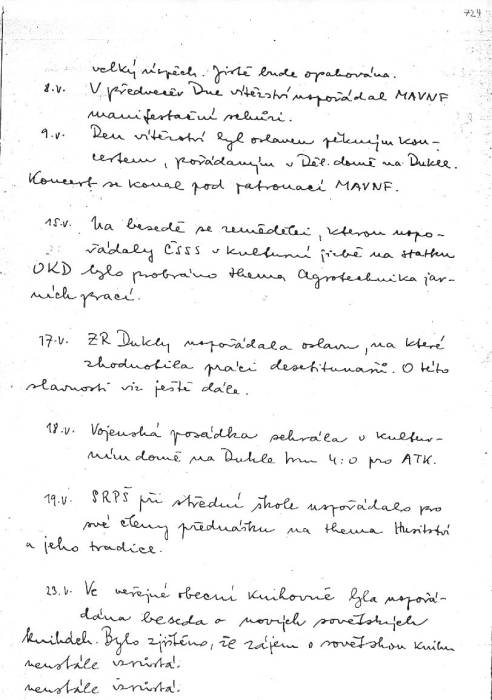 724
velký úspěch. Jistě bude opakována.
8.V. V předvečer Dne vítězství uspořádal MAVNF
manifestační schůzi.
9.V. Den vítězství byl oslaven pěkným kon-
certem, pořádaným v Děl. domě na Dukle.
Koncert se konal pod patronací MAVNF.
15.V. Na besedě se zemědělci, kterou uspo-
řádaly ČSSS v kulturní jizbě na statku
OKD bylo probráno thema Agrotechnika jar-
ních prací.
17.V. ZR Dukly uspořádala oslavu, na které
zhodnotila práci desetitunařů. O této
slavnosti viz ještě dále.
18.V. Vojenská posádka sehrála v Kultur-
ním domě na Dukle hru 4:0 pro ATK.
19.V. SRPŠ při střední škole uspořádalo pro
své členy přednášku na thema Husitství
a jeho tradice.
23.V. Ve veřejné obecní knihovně byla uspořá-
dána beseda o nových sovětských
knihách. Bylo zjištěno, že zájem o sovětskou knihu
neustále vzrůstá.
neustále vzrůstá.